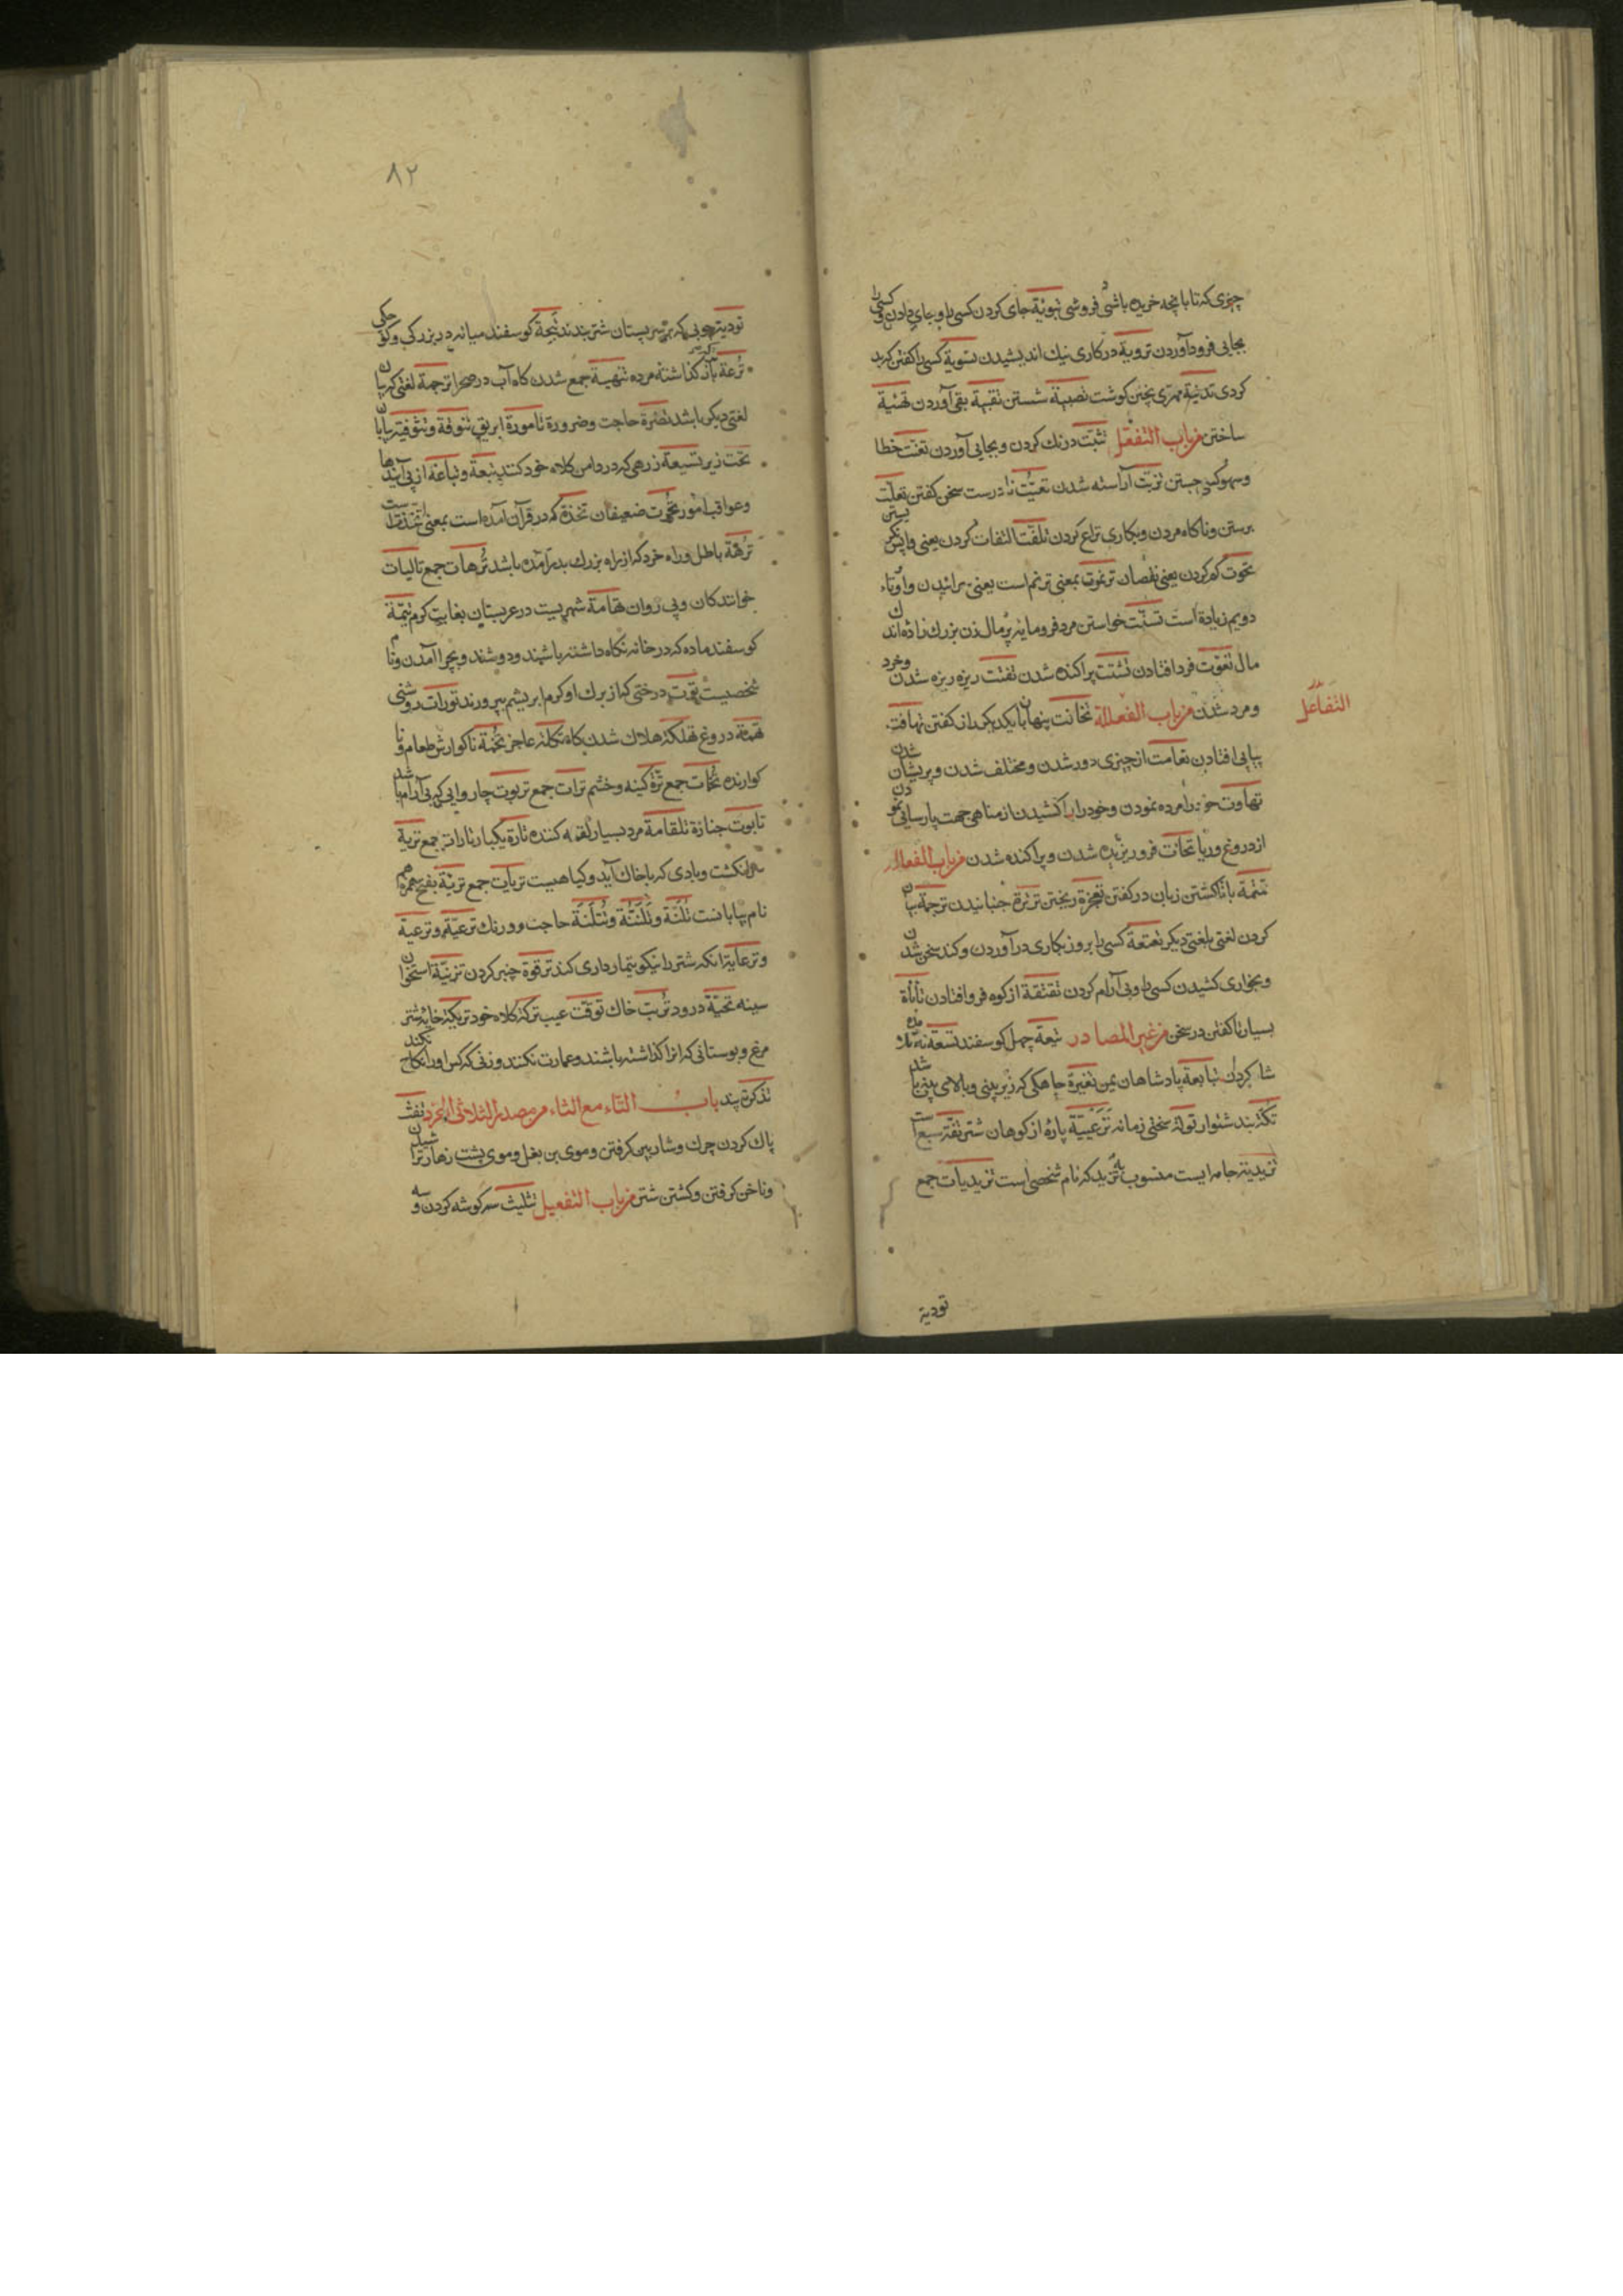 چیزی که تا بانچه خریده باشی فروشی تبوئة جای کردن کسی را و جای دادن کسی را
بجایی فرود آوردن ترویة در کاری نیک اندیشیدن تسویة کسی را کفتن که بد
کردی تدنیة مهری پختن کوشت تصبیة شستن تقیبة بقی آوردن تهنیة
ساختن من باب التفعّل تثبّت درنک کردن و بجایی آوردن تعنّت خطا
و سهو کسی جستن تزبّت آراسته شدن تعیّت نادرست سخن کفتن تفلّت
برستن و ناکاه مردن و بکاری نزاع کردن تلفّت التفات کردن یعنی واپس نکریستن
تخوت کم کردن یعنی نقصان ترنموت بمعنی ترنم است یعنی سرائیدن واو و تاء
دویم زیادة است تسنّت خواستن مرد فرومایه پر مال زن بزرک زاده اندک
مال تفوّت فردا افتادن تشتّت پراکنده شدن تفتّت ریزه ریزه شدن و خرد
و مرد شدن من باب الفعللة تخافت پنهان با یکدیکر راز کفتن تهافت
التفاعل
پیاپی افتادن تفاوت از چیزی دور شدن و مختلف شدن و پریشان شدن
تهاوت خود را مرده نمودن و خود را باز کشیدن از مناهی جهت پارسایی نمودن
از دروغ و ریا تحاتت فرو ریزیده شدن و پراکنده شدن من باب الفعلال
تمتمة باتا کشتن زبان در کفتن ریختن ترترة جنبانیدن ترجمة بیان
کردن لغتی بلغتی دیکر تعتعة کسی را بروز بکاری در آوردن و کند سخن شدن
و بخواری کشیدن کسی را و بی آرام کردن تقتقة از کوه فرو افتادن تأتأة
بسیار تا کفتن در سخن من غیر المصادر تیعة چهل کوسفند تسعة نه
شاکردان تبابعة پادشاهان یمن تغیرة چاهکی که زیر بینی و بالای بینی باشد
تکّة بند شلوار تولة سختی زمانه ترعیبة پارهٔ از کوهان شتر تفة سبع است
تزیدیة جامه ایست منسوب به تزید که نام شخصی است تزیدیات جمع
تودیة
٨٢
تودیة چوبی که بر سر پستان شتر بندند تیمة کوسفند میانه در بزرکی و کوچکی
ترعة باز گذاشته مرده تنهیة جمع شدن کاه آب در صحرا ترجمة لغتی که بیان
لغتی دیکر باشد تضرة حاجت و ضرورة تامورة ابریق تنوفة و تنوفیة بیابان
تخت زیر تسیعة زرهی که در دامن کلاه خود کنند تبعة و تباعة از پی آیندها
و عواقب امور تخوت ضعیفان تخذة که در قرآن آمده است بمعنی اتخذت است
ترهة باطل و راه خرد که از راه بزرک بدر آمده باشد ترهات جمع تالیات
خوانندکان و پی روان تهامة شهریست در عربستان بغایت کرم تیمة
کوسفند ماده که در خانه نکاه داشته باشند و دوشند و بچرا آمدن و نام
شخصیست توت درختی که از برک او کرم ابریشم بپرورند تورات روشنی
تهمة دروغ تهلکة هلاک شدن کاه تکلة عاجز تخمة ناکوارش طعام و نا
کوارنده تخمات جمع ترة کینه و خشم ترات جمع تربوت چاروایی که بی آرام باشد
تابوت جنازة تلقامة مرد بسیار لقمه کننده تارة یکبار تارات جمع تربة
سر انکشت و بادی که با خاک آید و کیاهیست تربات جمع تربة بفتح همزه هم
نام بیابانست تلنة و تلنّة و تتلنة حاجت و درنک ترعیّة و ترعیة
و ترعایة انکه شتر را نیکو تیمار داری کند ترقوة چنبر کردن تریبة استخوان
سینه تحیّة درود تربت خاک توقّت عیب ترکة کلاه خود تریکة خایهٔ شتر
مرغ و بوستانی که انرا کذاشته باشند و عمارت نکنند و زنی که کس او را نکاح نکند
تذکرة پند باب التاء مع الثاء من مصدر الثلاثی المجرد تفث
پاک کردن چرک و شارب کرفتن و موی بن بغل و موی پشت زهار تراشیدن
و ناخن کرفتن و کشتن شتر من باب التفعیل تثلیث سه کوشه کردن و سه